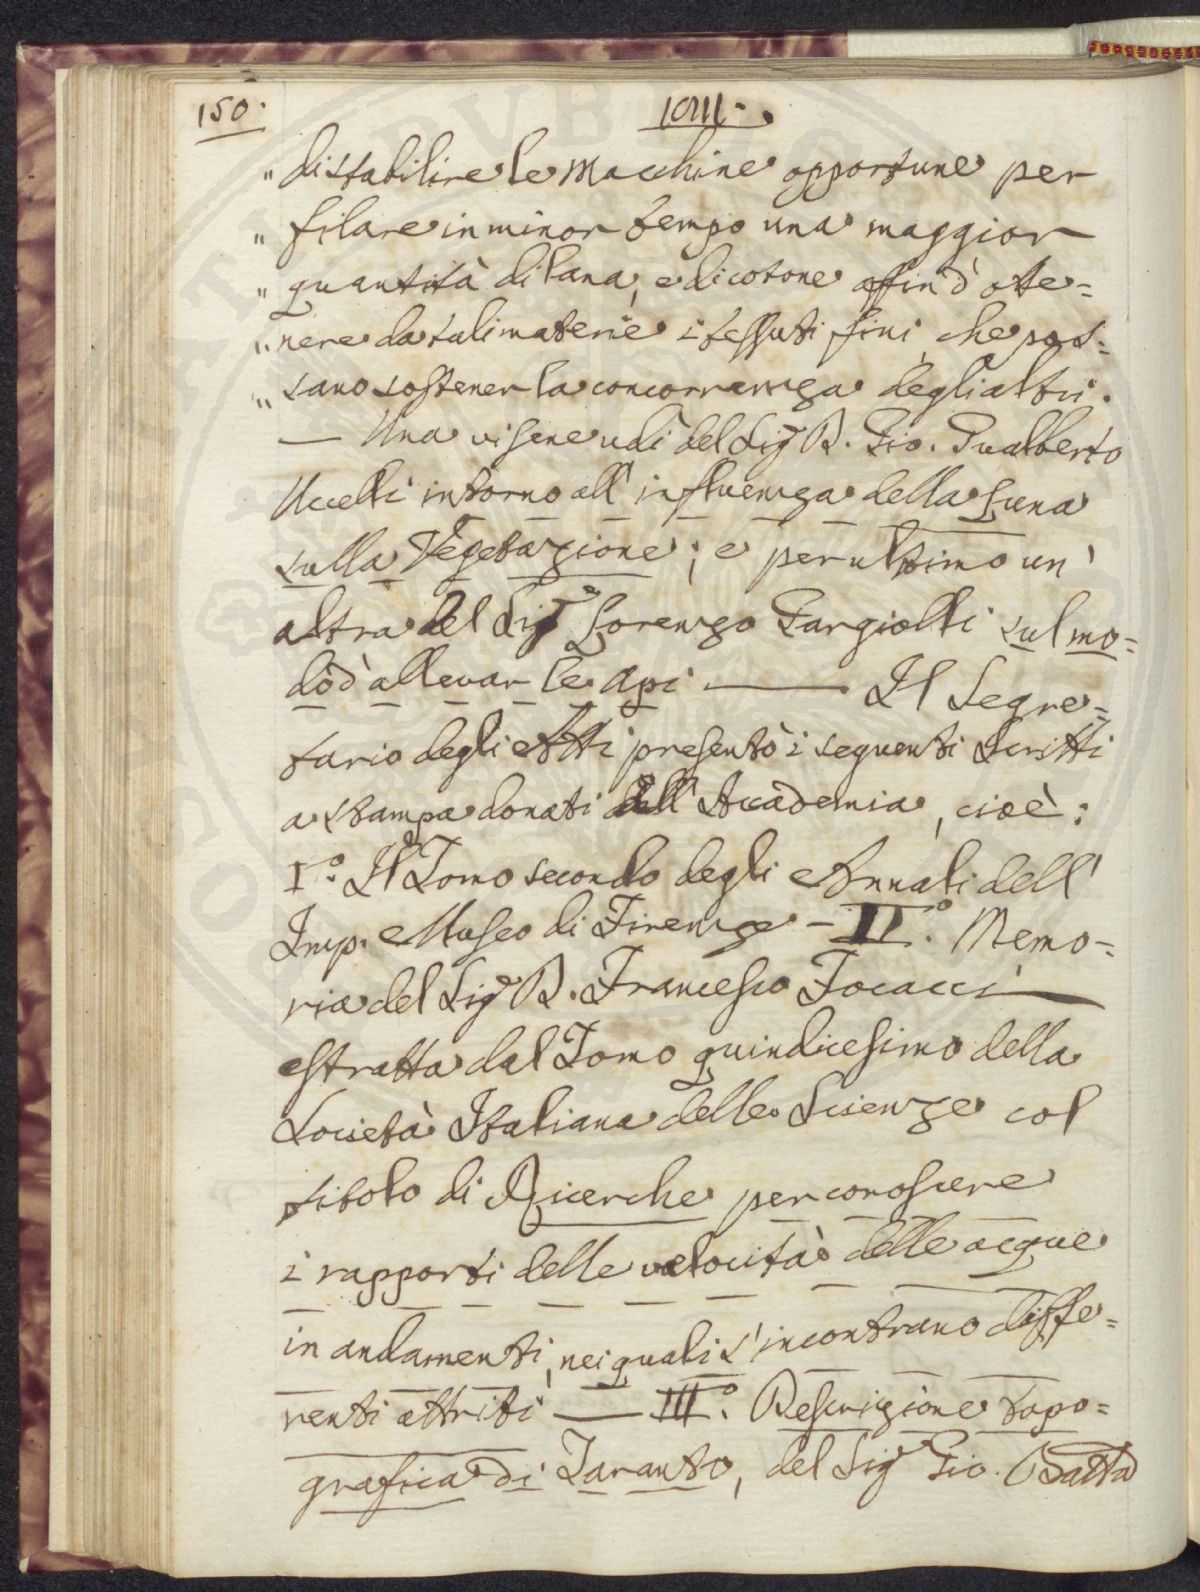 150.
1811.
" di stabilire le Macchine opportune per
" filare in minor tempo una maggior
" quantità di lana, e di cotone affin d'otte=
" nere da tali materie i tessuti fini, che pos=
" sano sostener la concorrenza degli altri.
— Una visene udì del Sigr D. Gio. Gualberto
Uccelli intorno all' influenza della Luna
sulla Vegetazione; e per ultimo un'
altra del Sigr Lorenzo Pargiolli sul mo=
do d'allevar le Api —— Il Segre=
tario degli Atti presentò i seguenti Scritti
a stampa donati all' Accademia, cioè:
I.° Il Tomo secondo degli Annali dell'
Imp. Museo di Firenze – II.° Memo=
ria del Sigr D. Francesco Focacci
estratta dal Tomo quindicesimo della
Società Italiana delle Scienze col
titolo di Ricerche per conoscere
i rapporti delle velocità delle acque
in andamenti, nei quali s'incontrano diffe=
renti attriti —— III.° Descrizione topo=
grafica di Taranto, del Sigr Gio. Batta